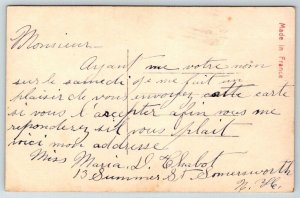 Monsieur
Ayant me votre nom
sur le samedi je me fait un
plaisir de vous envoyer cette carte
si vous l'accepter afin vous me
reponderez sil vous plait
voici mon addresse
Miss Maria D. Chabot
13 Summer St. Somersworth
N. H.
Made in France